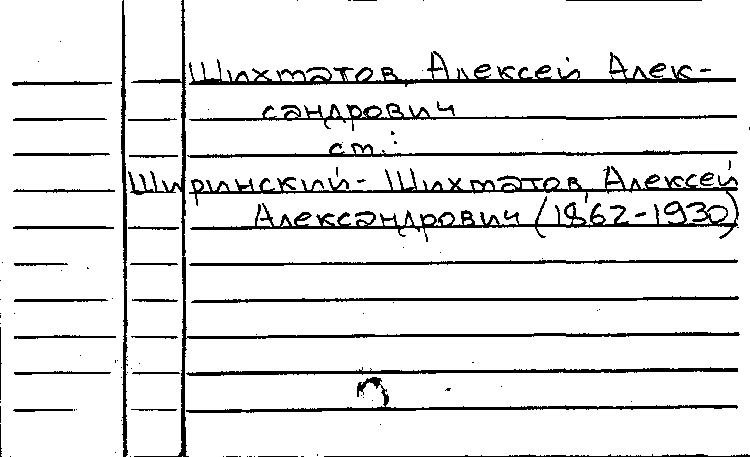 Шихматов, Алексей Алек-
сандрович
см.:
Ширинский-Шихматов, Алексей
Александрович (1862-1930)